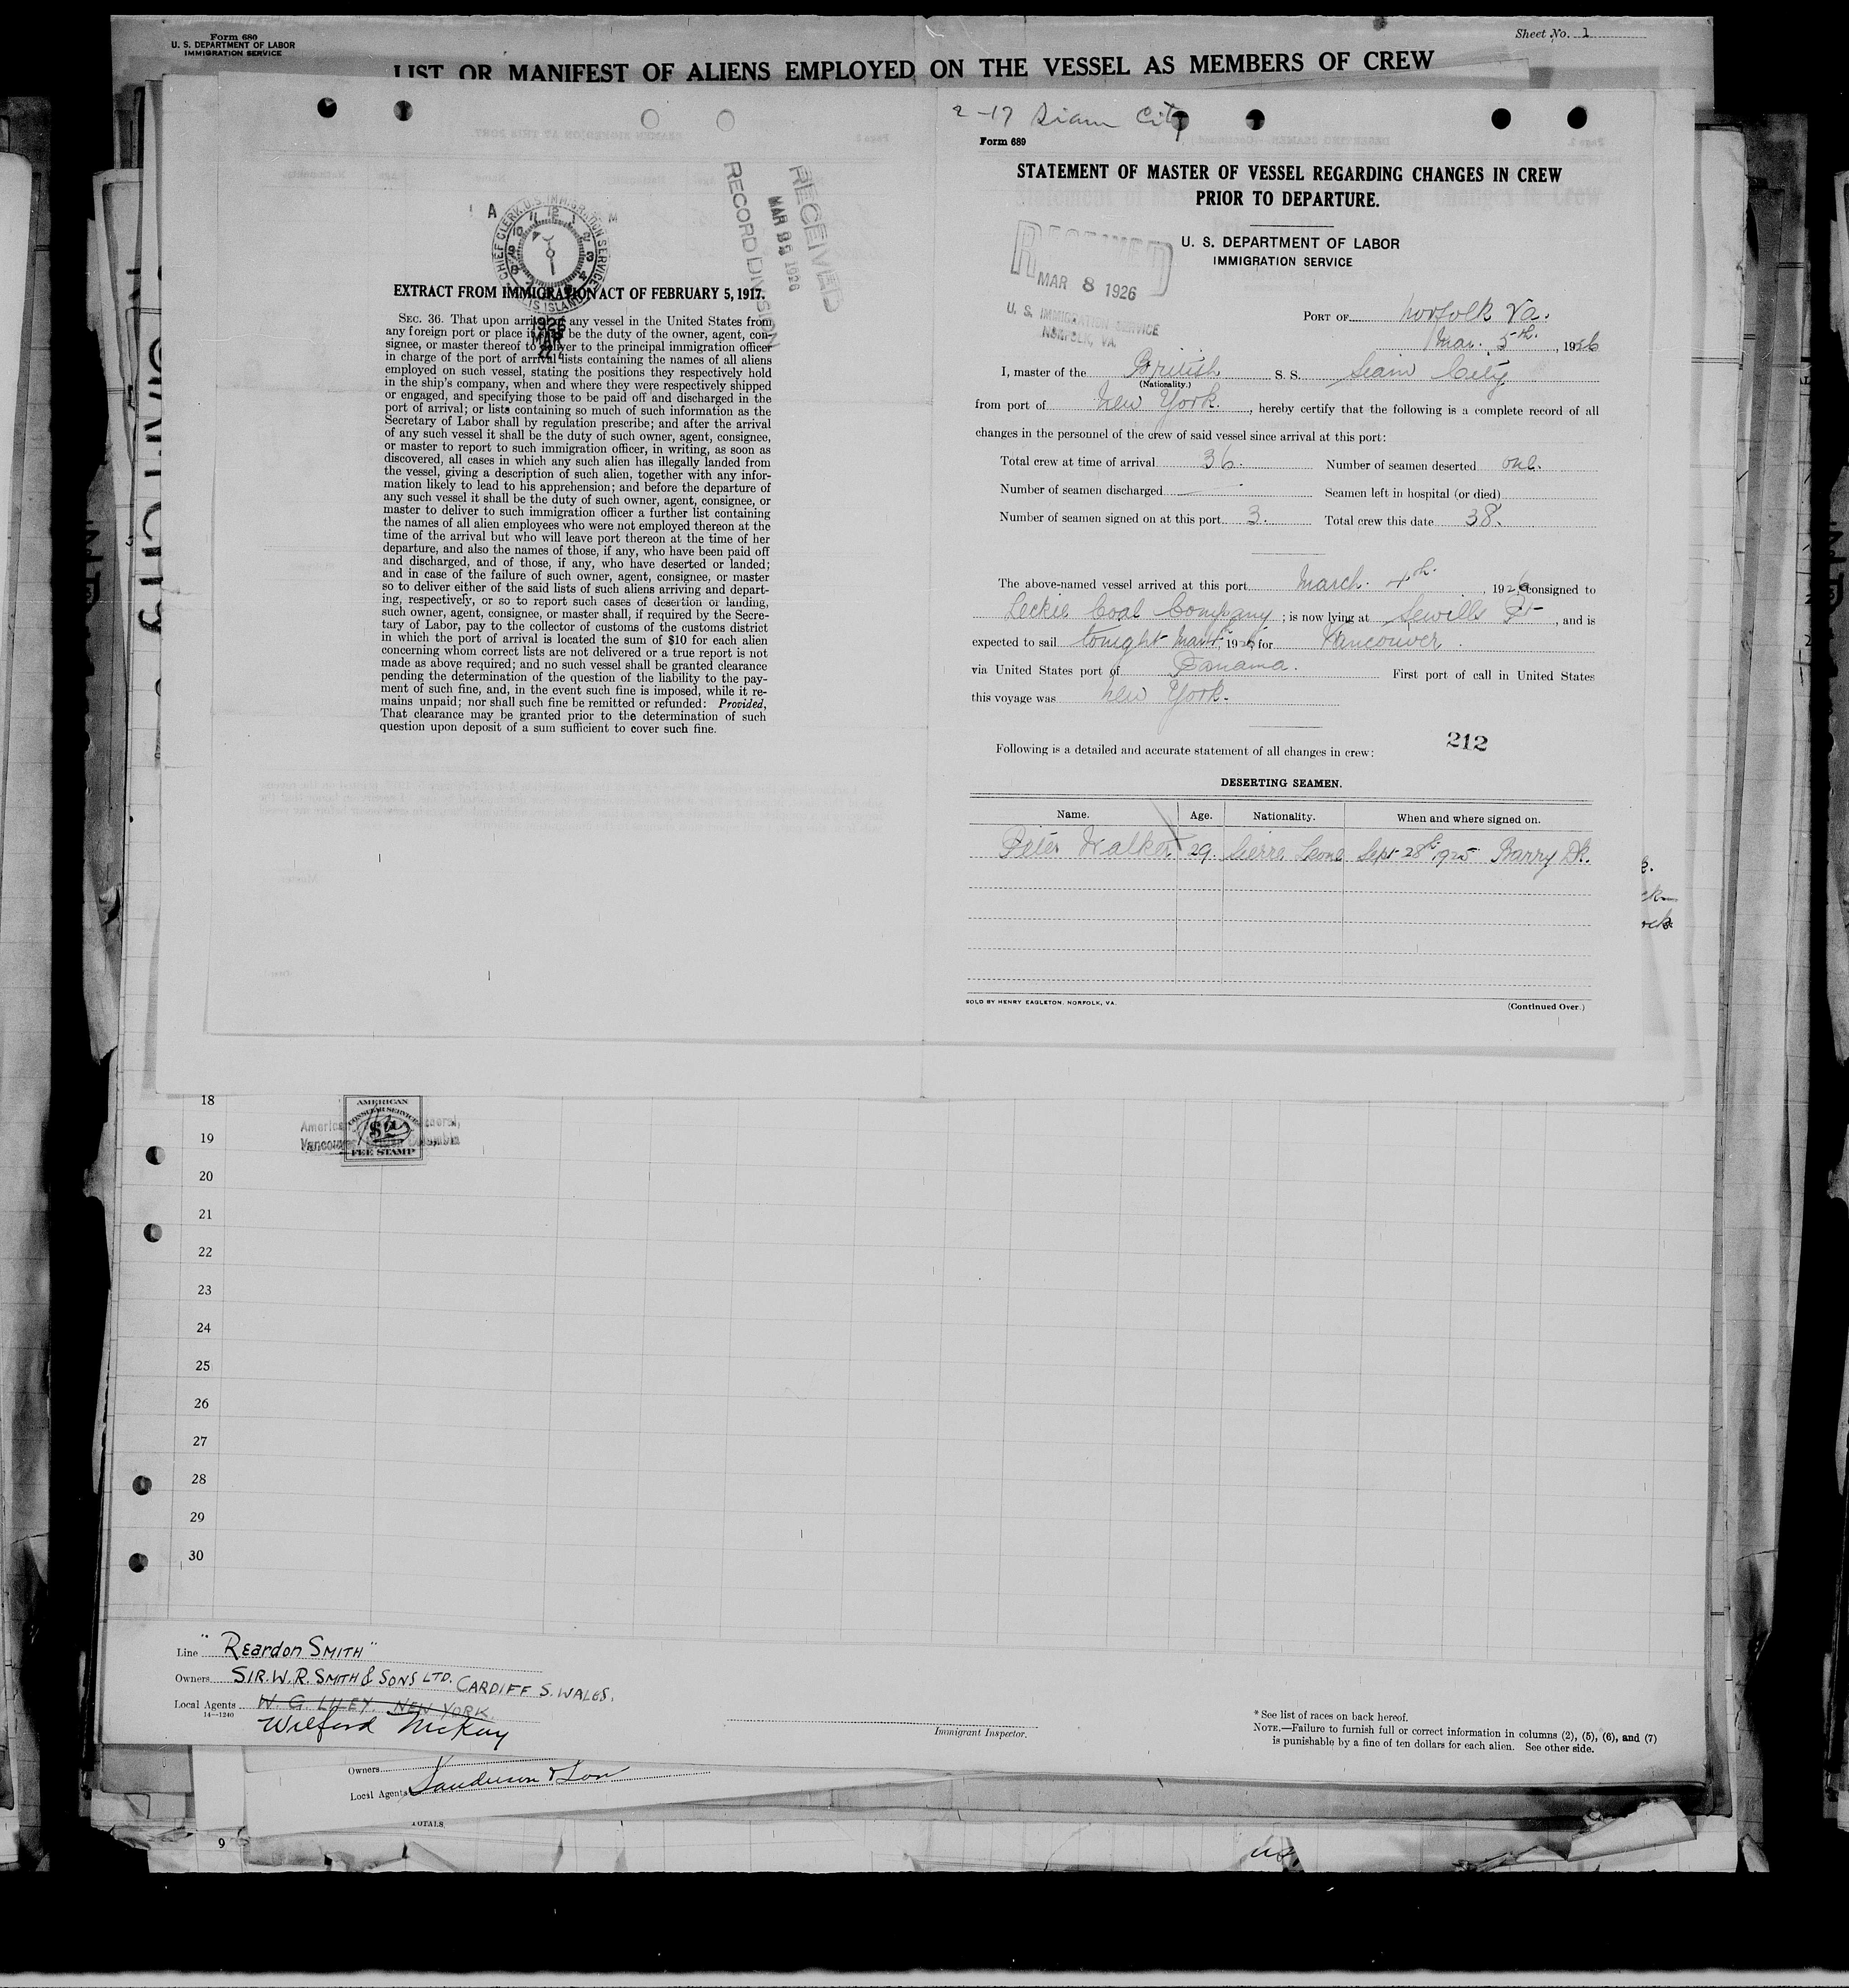 Form 680
U. S. DEPARTMENT OF LABOR
IMMIGRATION SERVICE
Sheet No. 1
LIST OR MANIFEST OF ALIENS EMPLOYED ON THE VESSEL AS MEMBERS OF CREW
CHIEF CLERK, U.S. IMMIGRATION SERVICE
1926
MAR
RECEIVED
1926
RECORD DIVISION
EXTRACT FROM IMMIGRATION ACT OF FEBRUARY 5, 1917.
SEC. 36. That upon arrival of any vessel in the United States from
any foreign port or place it shall be the duty of the owner, agent, con-
signee, or master thereof to deliver to the principal immigration officer
in charge of the port of arrival lists containing the names of all aliens
employed on such vessel, stating the positions they respectively hold
in the ship's company, when and where they were respectively shipped
or engaged, and specifying those to be paid off and discharged in the
port of arrival; or lists containing so much of such information as the
Secretary of Labor shall by regulation prescribe; and after the arrival
of any such vessel it shall be the duty of such owner, agent, consignee,
or master to report to such immigration officer, in writing, as soon as
discovered, all cases in which any such alien has illegally landed from
the vessel, giving a description of such alien, together with any infor-
mation likely to lead to his apprehension; and before the departure of
any such vessel it shall be the duty of such owner, agent, consignee, or
master to deliver to such immigration officer a further list containing
the names of all alien employees who were not employed thereon at the
time of the arrival but who will leave port thereon at the time of her
departure, and also the names of those, if any, who have been paid off
and discharged, and of those, if any, who have deserted or landed;
and in case of the failure of such owner, agent, consignee, or master
so to deliver either of the said lists of such aliens arriving and depart-
ing, respectively, or so to report such cases of desertion or landing,
such owner, agent, consignee, or master shall, if required by the Secre-
tary of Labor, pay to the collector of customs of the customs district
in which the port of arrival is located the sum of $10 for each alien
concerning whom correct lists are not delivered or a true report is not
made as above required; and no such vessel shall be granted clearance
pending the determination of the question of the liability to the pay-
ment of such fine, and, in the event such fine is imposed, while it re-
mains unpaid; nor shall such fine be remitted or refunded: Provided,
That clearance may be granted prior to the determination of such
question upon deposit of a sum sufficient to cover such fine.
2-17 Siam City
Form 689
STATEMENT OF MASTER OF VESSEL REGARDING CHANGES IN CREW
PRIOR TO DEPARTURE.
U. S. DEPARTMENT OF LABOR
IMMIGRATION SERVICE
RECEIVED
MAR 8 1926
U. S. IMMIGRATION SERVICE
NORFOLK, VA.
PORT OF Norfolk Va.
Mar. 5th, 1926
I, master of the British S. S. Siam City
(Nationality.)
from port of New York, hereby certify that the following is a complete record of all
changes in the personnel of the crew of said vessel since arrival at this port:
Total crew at time of arrival 36. Number of seamen deserted one.
Number of seamen discharged — Seamen left in hospital (or died)
Number of seamen signed on at this port 3. Total crew this date 38.
The above-named vessel arrived at this port March 4th. 1926 consigned to
Leckie Coal Company; is now lying at Sewills Pt, and is
expected to sail tonight 1926, for Vancouver.
via United States port of Panama. First port of call in United States
this voyage was New York.
Following is a detailed and accurate statement of all changes in crew:
212
DESERTING SEAMEN.
Name. Age. Nationality. When and where signed on.
Peter Walker 29. Sierra Leone Sept 28th 1925 Barry Dk.
SOLD BY HENRY EAGLETON, NORFOLK, VA.
(Continued Over.)
18
19
20
21
22
23
24
25
26
27
28
29
30
AMERICAN
CONSULAR SERVICE
FEE STAMP
Line "Reardon SMITH"
Owners SIR. W. R. SMITH & SONS LTD. CARDIFF S. WALES.
Local Agents W. G. LILEY. NEW YORK.
14—1240
Wilford McKay
Immigrant Inspector.
* See list of races on back hereof.
NOTE.—Failure to furnish full or correct information in columns (2), (5), (6), and (7)
is punishable by a fine of ten dollars for each alien. See other side.
Owners
Local Agents Sanderson & Son
TOTALS
9